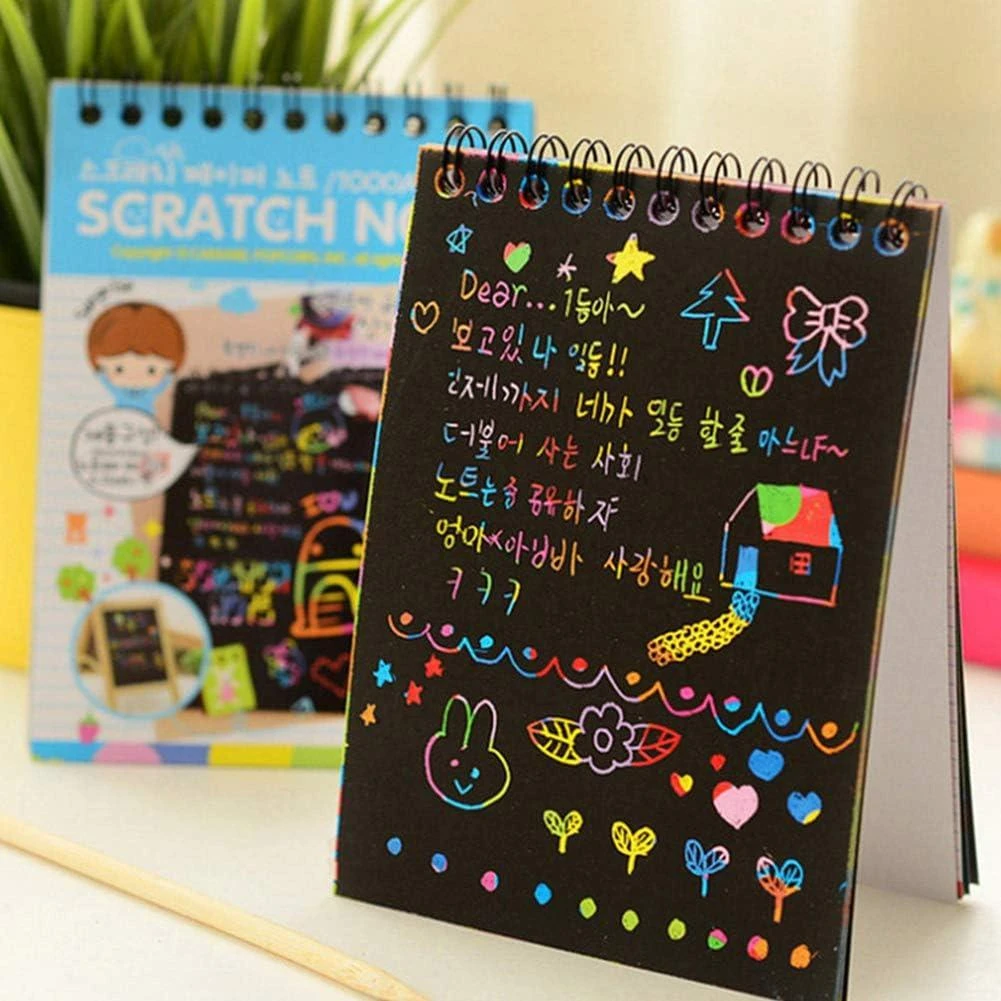 스크래치 페이퍼 노트 /1000A
SCRATCH NO
Dear... 1등아~
보고있나 일등!!
언제까지 네가 일등 할줄 아느냐~
더불어 사는 사회
노트는좀 공유하자
엄마×아빠 사랑해요
ㅋㅋㅋ